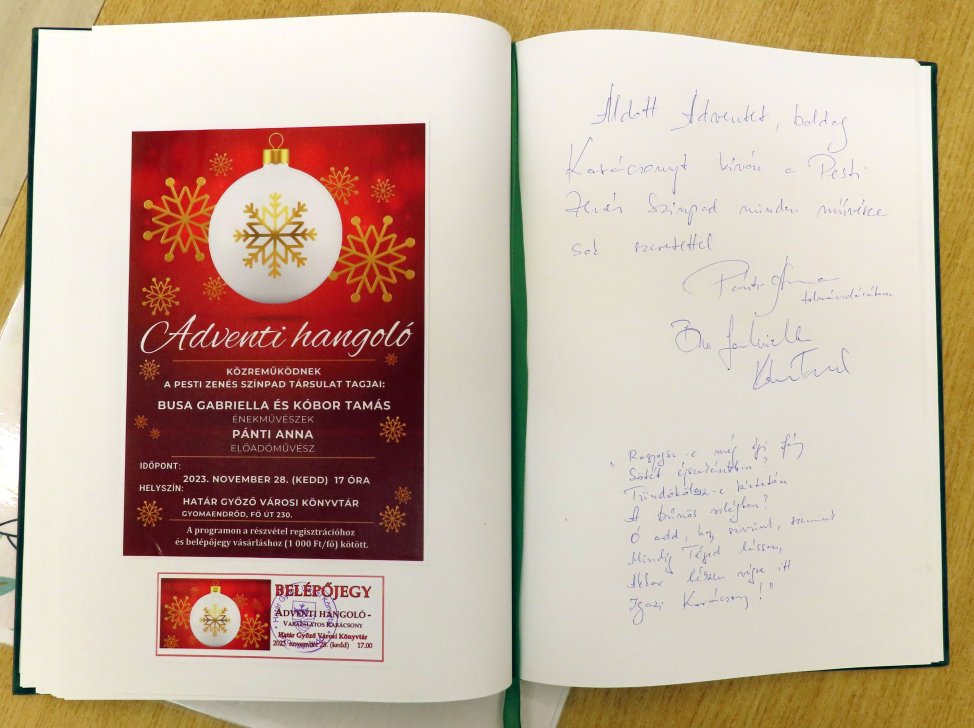 Adventi hangoló
KÖZREMŰKÖDNEK
A PESTI ZENÉS SZÍNPAD TÁRSULAT TAGJAI:
BUSA GABRIELLA ÉS KÓBOR TAMÁS
ÉNEKMŰVÉSZEK
PÁNTI ANNA
ELŐADÓMŰVÉSZ
IDŐPONT:
2023. NOVEMBER 28. (KEDD) 17 ÓRA
HELYSZÍN:
HATÁR GYŐZŐ VÁROSI KÖNYVTÁR
GYOMAENDRŐD, FŐ ÚT 230.
A programon a részvétel regisztrációhoz
és belépőjegy vásárláshoz (1 000 Ft/fő) kötött.
BELÉPŐJEGY
ADVENTI HANGOLÓ -
VARÁZSLATOS KARÁCSONY
Határ Győző Városi Könyvtár
2023. november 28. (kedd) 17.00
Áldott Adventet, boldog
Karácsonyt kíván a Pesti
Zenés Színpad minden művésze
sok szeretettel
Pánti Anna
tolmácsolásában
Busa Gabriella
"Ragyogsz-e még égi fény
Sötét éjszakában?
Tündökölsz-e
A bűnös világban?
Ó add, hogy szívünk, szemünk
Mindig Téged lásson,
Akkor lészen végre itt
Igazi Karácsony!"